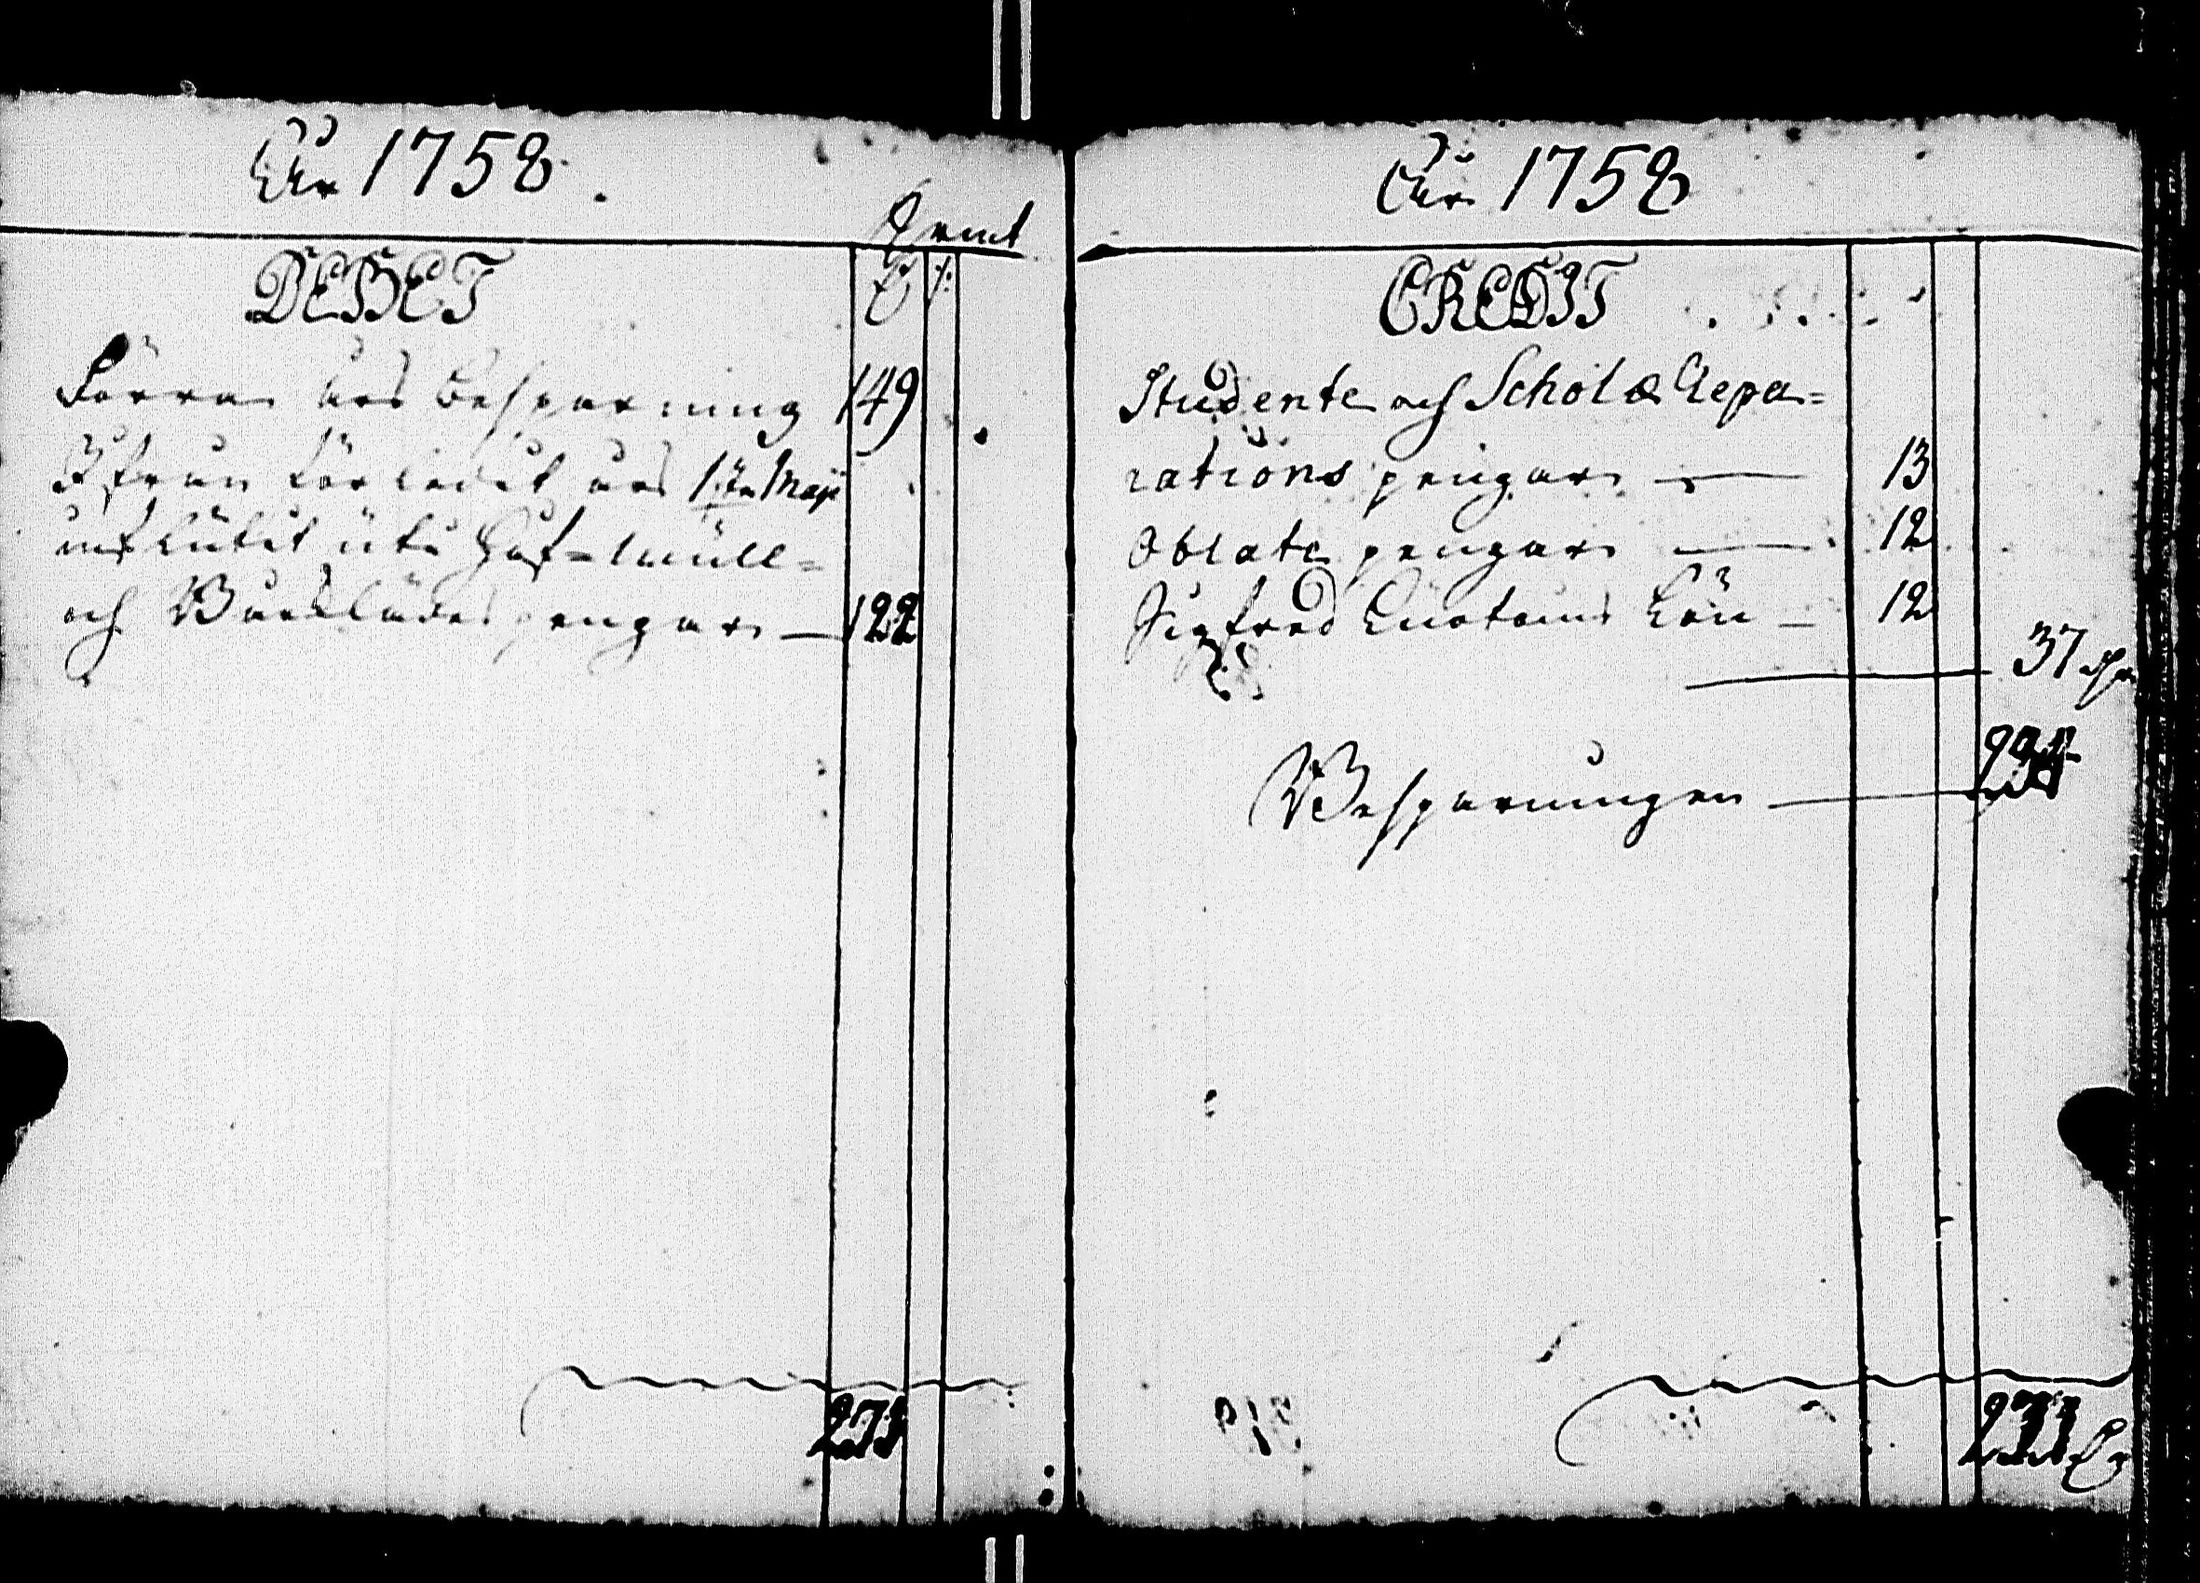 År 1758.
Kmt
DEBET
Förra års besparning 149
Ifrån förledit års 1sta Maji
influtit uti Håf-mull-
och Bårklädes pengar — 122
271
År 1758
CREDIT
Studente och Scholæ Repa=
rations pengar — 13
Oblate pengar — 12
Sigfred Knutsons Lön — 12
37
Besparningen — 234
271